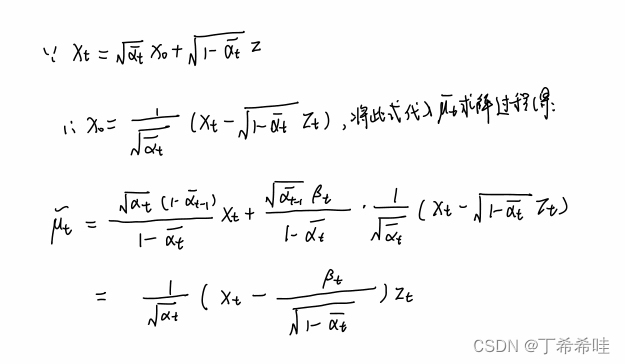 ∵ xₜ = √ᾱₜ x₀ + √(1-ᾱₜ) z
∴ x₀ = 1/√ᾱₜ (xₜ - √(1-ᾱₜ) zₜ), 将此式代入 μ̃ₜ 求解过程得:
μ̃ₜ = √αₜ (1-ᾱₜ₋₁) / (1-ᾱₜ) xₜ + √ᾱₜ₋₁ βₜ / (1-ᾱₜ) · 1/√ᾱₜ (xₜ - √(1-ᾱₜ) zₜ)
= 1/√αₜ (xₜ - βₜ/√(1-ᾱₜ)) zₜ
CSDN @丁希希哇